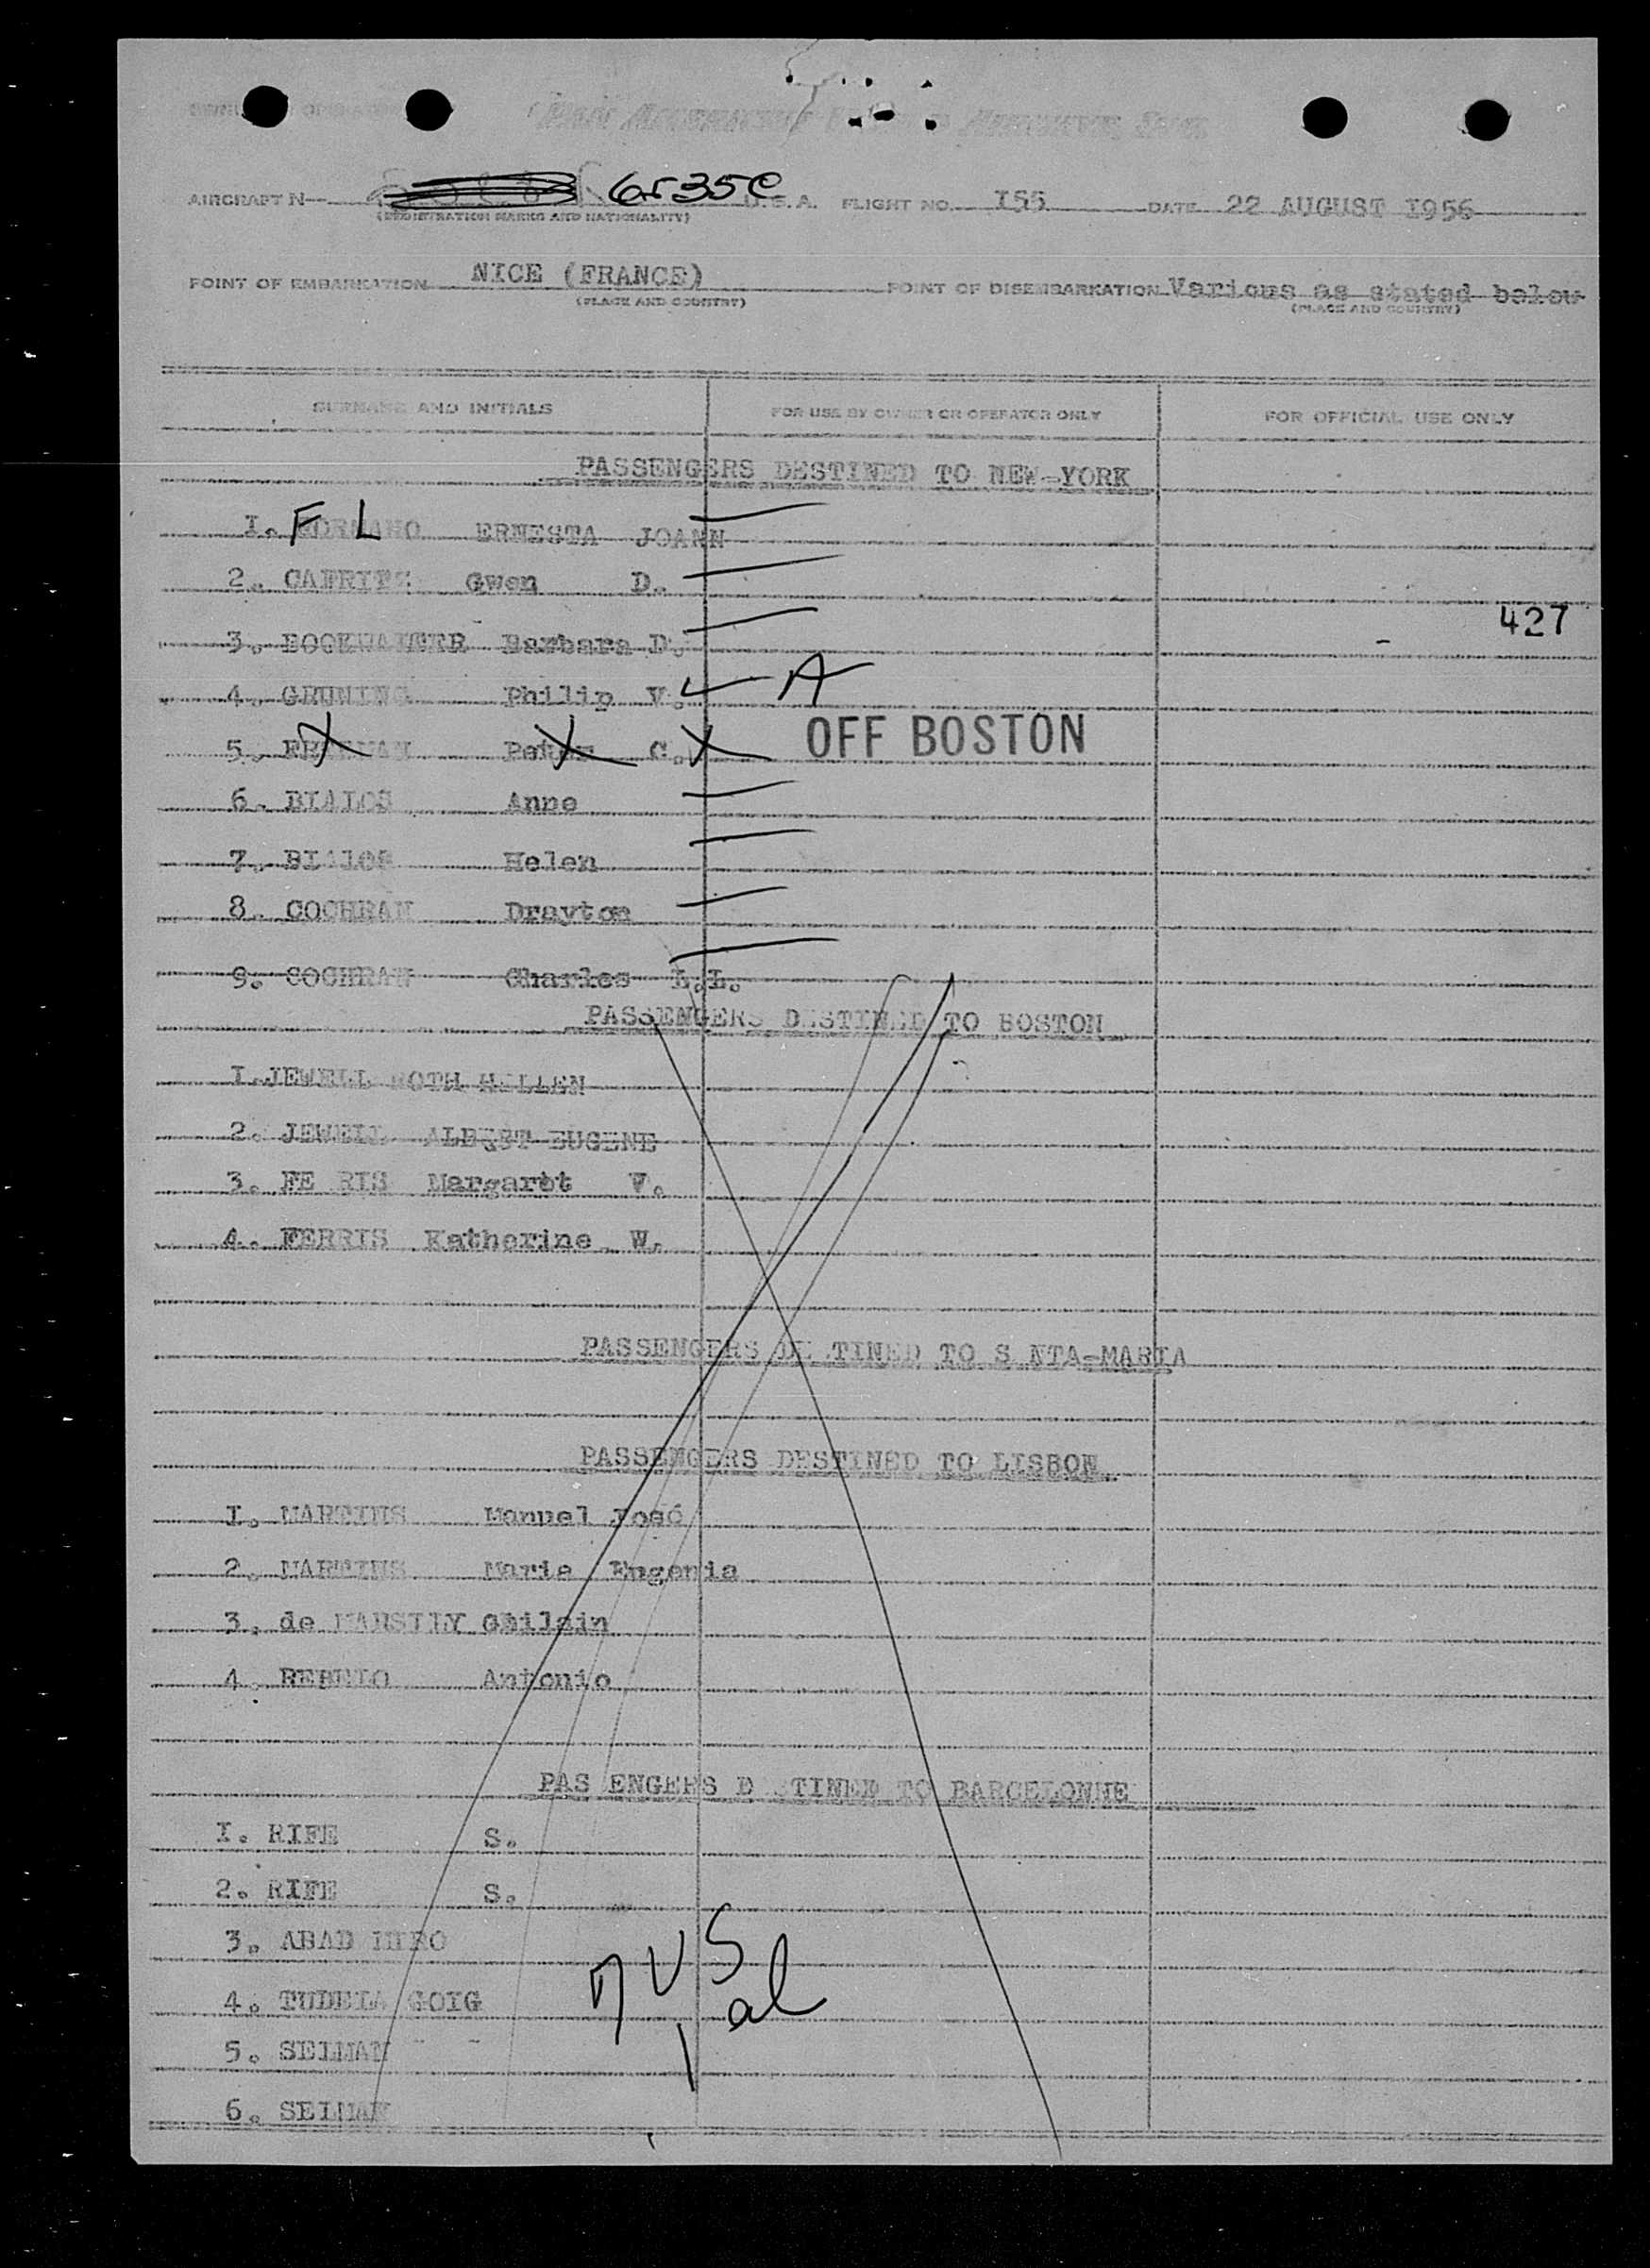 PAN AMERICAN WORLD AIRWAYS, INC.
AIRCRAFT N 6535C U.S.A. FLIGHT NO. I55 DATE 22 AUGUST I956
(REGISTRATION MARKS AND NATIONALITY)
POINT OF EMBARKATION NICE (FRANCE) POINT OF DISEMBARKATION Various as stated below
(PLACE AND COUNTRY) (PLACE AND COUNTRY)
SURNAME AND INITIALS FOR USE BY OWNER OR OPERATOR ONLY FOR OFFICIAL USE ONLY
PASSENGERS DESTINED TO NEW-YORK
I. F L ERNESTA JOANN
2. CAFRITZ Gwen D.
427
3. BOOKWALTER Barbara D.
4. GRUNING Philip V. A
5. Peter C. OFF BOSTON
6. BIALOS Anne
7. BIALOS Helen
8. COCHRAN Drayton
9. COCHRAN Charles L.L.
PASSENGERS DESTINED TO BOSTON
I. JEWELL ROTH HELLEN
2. JEWELL ALBERT EUGENE
3. FE RIS Margaret V.
4. FERRIS Katherine W.
PASSENGERS DE TINED TO S NTA-MARIA
PASSENGERS DESTINED TO LISBON
I. MARTINS Manuel José
2. MARTINS Maria Eugenia
3. de Ghilain
4. REBELO Antonio
PAS ENGERS D STINED TO BARCELONNE
I. RIFE S.
2. RIFE S.
3. ABAD
4. TUDELA GOIG
5. SELMAN
6. SELMAN